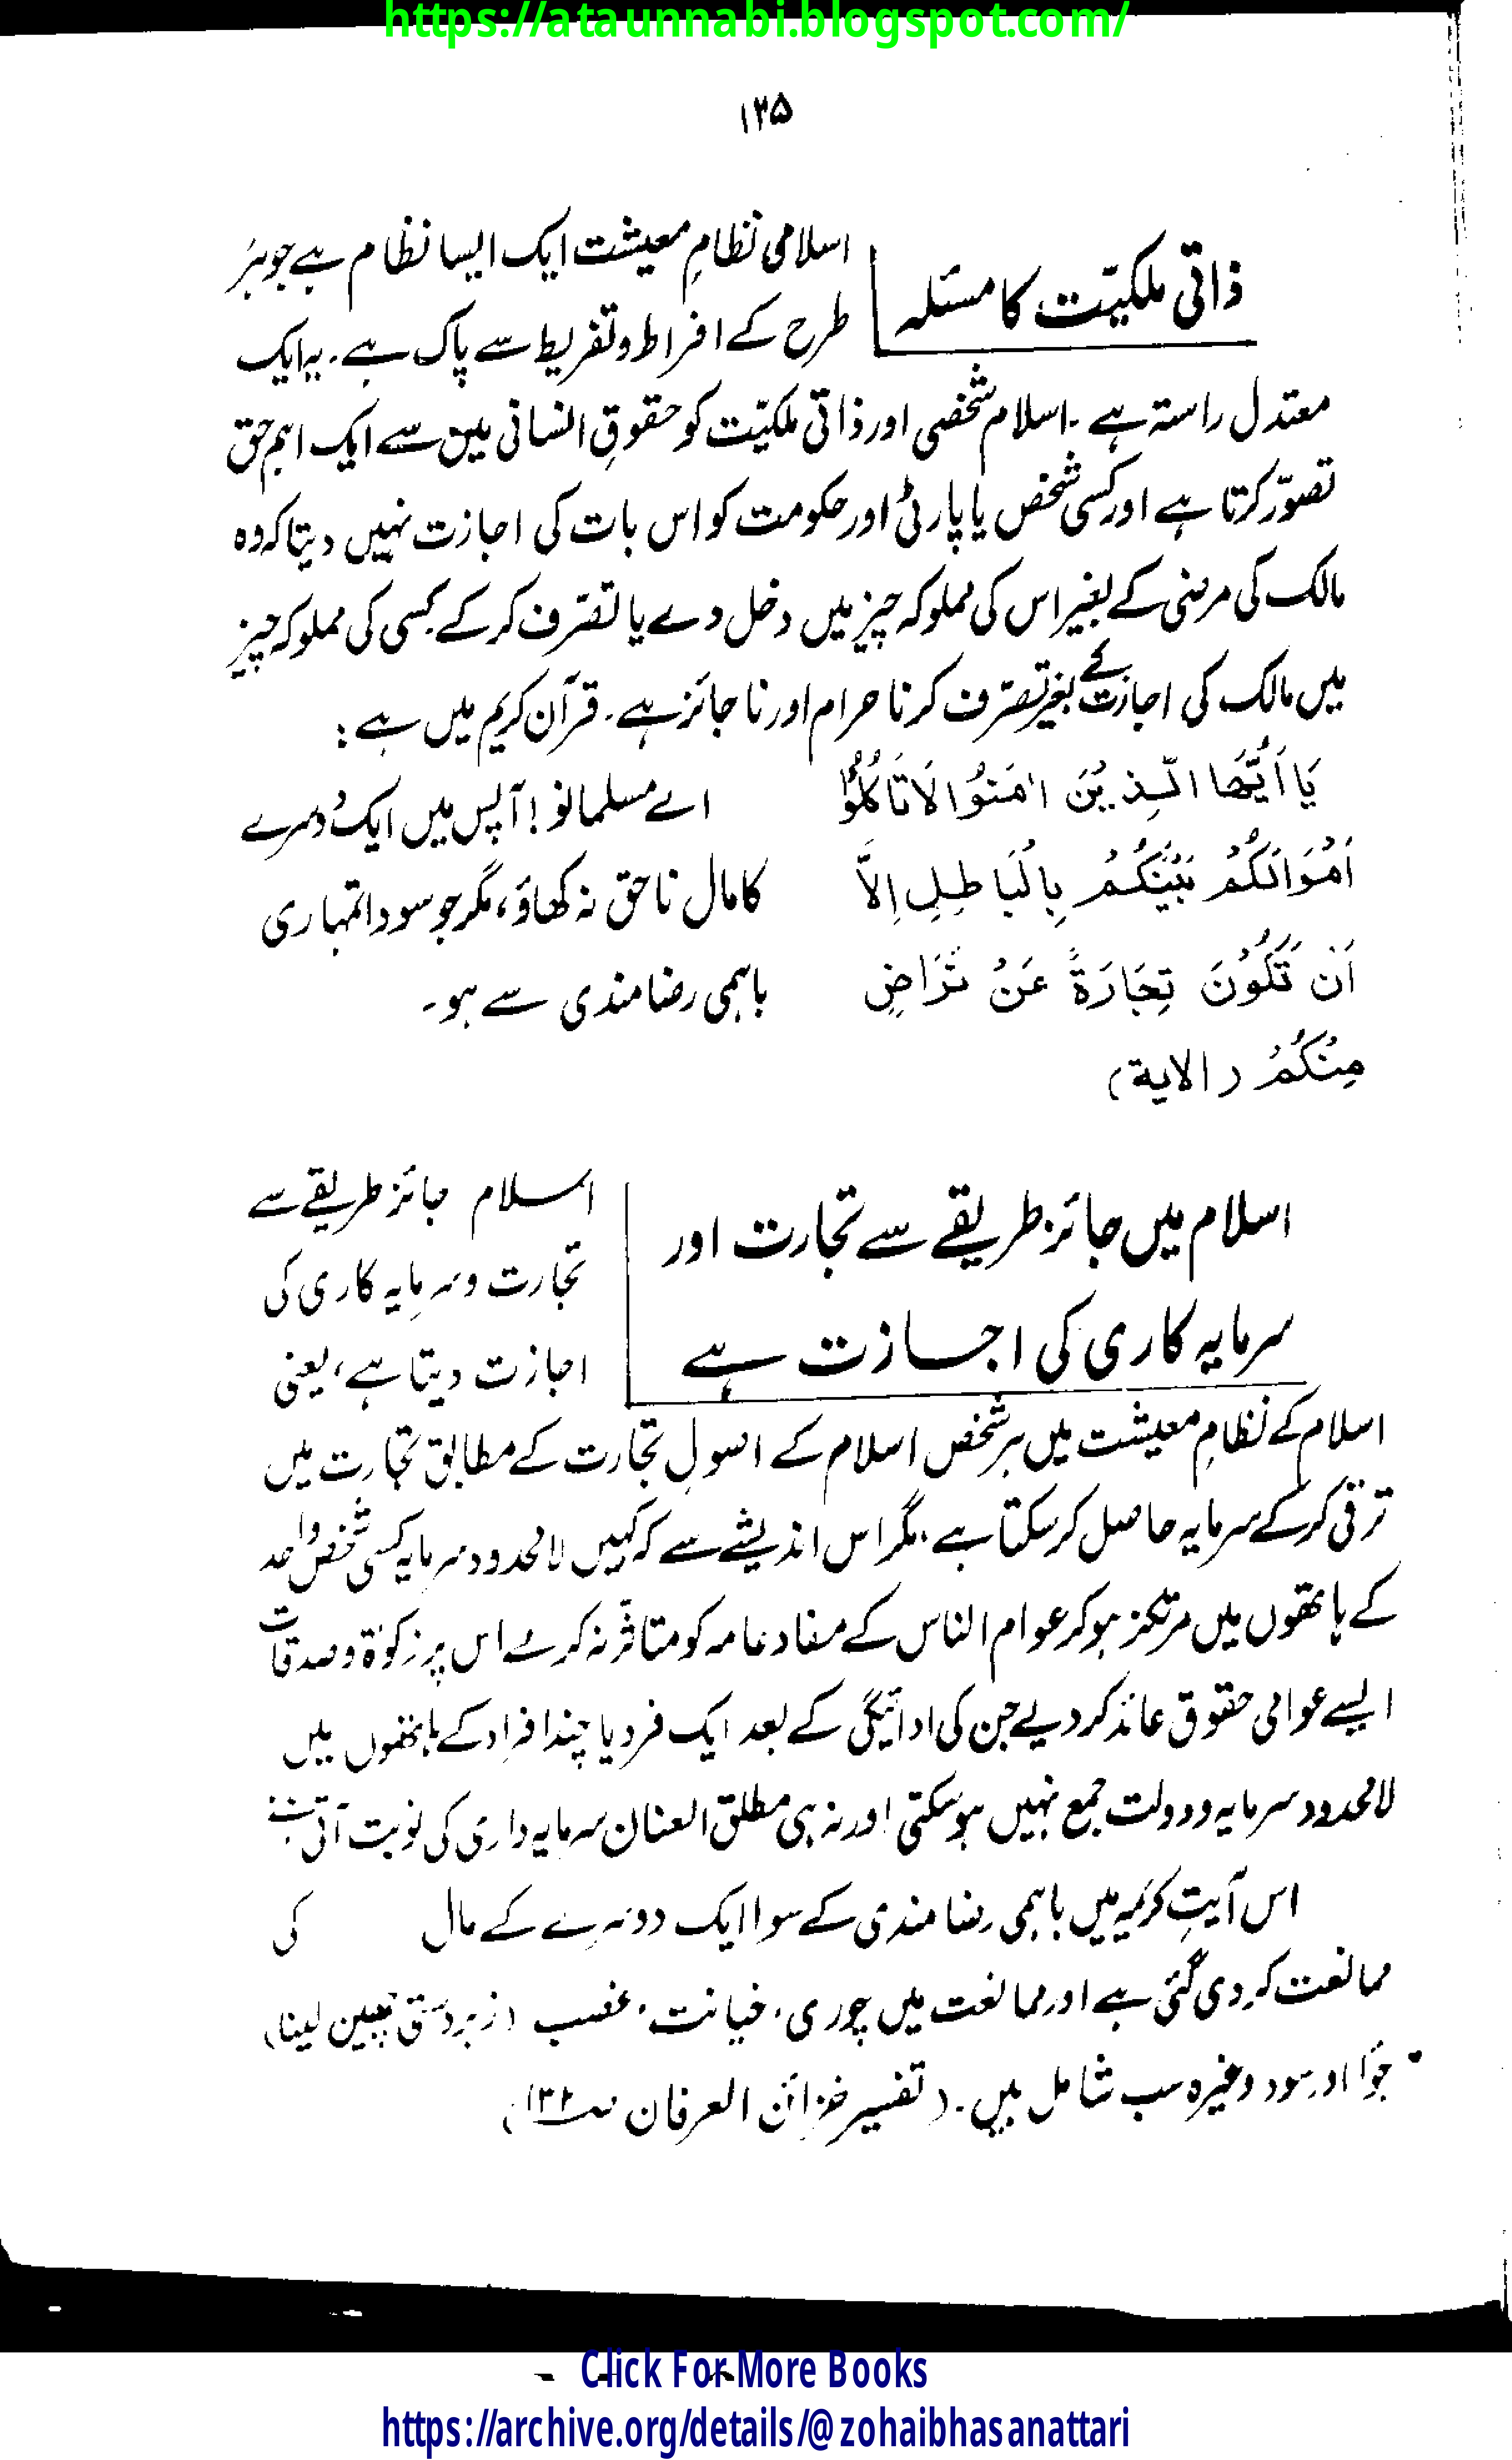 https://ataunnabi.blogspot.com/
۱۳۵
ذاتی ملکیّت کا مسئلہ
اسلامی نظامِ معیشت ایک ایسا نظام ہے جو ہر
طرح کے افراط و تفریط سے پاک ہے۔ یہ ایک
معتدل راستہ ہے۔ اسلام شخصی اور ذاتی ملکیّت کو حقوقِ انسانی میں سے ایک اہم حق
تصوّر کرتا ہے اور کسی شخص یا پارٹی اور حکومت کو اس بات کی اجازت نہیں دیتا کہ وہ
مالک کی مرضی کے بغیر اس کی مملوکہ چیز میں دخل دے یا تصّرف کرکے کسی کی مملوکہ چیز
میں مالک کی اجازت کے بغیر تصّرف کرنا حرام اور ناجائز ہے۔ قرآن کریم میں ہے :
يَا اَيُّهَا الَّذِيْنَ اٰمَنُوْا لَا تَأْكُلُوْا
اَمْوَالَكُمْ بَيْنَكُمْ بِالْبَاطِلِ اِلَّا
اَنْ تَكُوْنَ تِجَارَةً عَنْ تَرَاضٍ
مِنْكُمْ (الاية)
اے مسلمانو! آپس میں ایک دُوسرے
کا مال ناحق نہ کھاؤ، مگر جو سودا تمہاری
باہمی رضامندی سے ہو۔
اسلام میں جائز طریقے سے تجارت اور
سرمایہ کاری کی اجازت ہے
اسلام جائز طریقے سے
تجارت و سرمایہ کاری کی
اجازت دیتا ہے، یعنی
اسلام کے نظامِ معیشت میں ہر شخص اسلام کے اصولِ تجارت کے مطابق تجارت میں
ترقی کرکے سرمایہ حاصل کرسکتا ہے، مگر اس اندیشے سے کہ کہیں لامحدود سرمایہ کسی شخص واحد
کے ہاتھوں میں مرتکز ہوکر عوام الناس کے مفاد عامہ کو متاثّر نہ کرے اس پر زکوٰۃ و صدقات
ایسے عوامی حقوق عائد کردیے جن کی ادائیگی کے بعد ایک فرد یا چند افراد کے ہاتھوں میں
لامحدود سرمایہ و دولت جمع نہیں ہوسکتی اور نہ ہی مطلق العنان سرمایہ داری کی نوبت آتی ہے
اس آیتِ کریمہ میں باہمی رضامندی کے سوا ایک دوسرے کے مال کی
ممانعت کردی گئی ہے اور ممانعت میں چوری، خیانت، غصب (زبردستی چھین لینا)
جُوا اور سود وغیرہ سب شامل ہیں۔ (تفسیر خزائن العرفان
Click For More Books
https://archive.org/details/@zohaibhasanattari